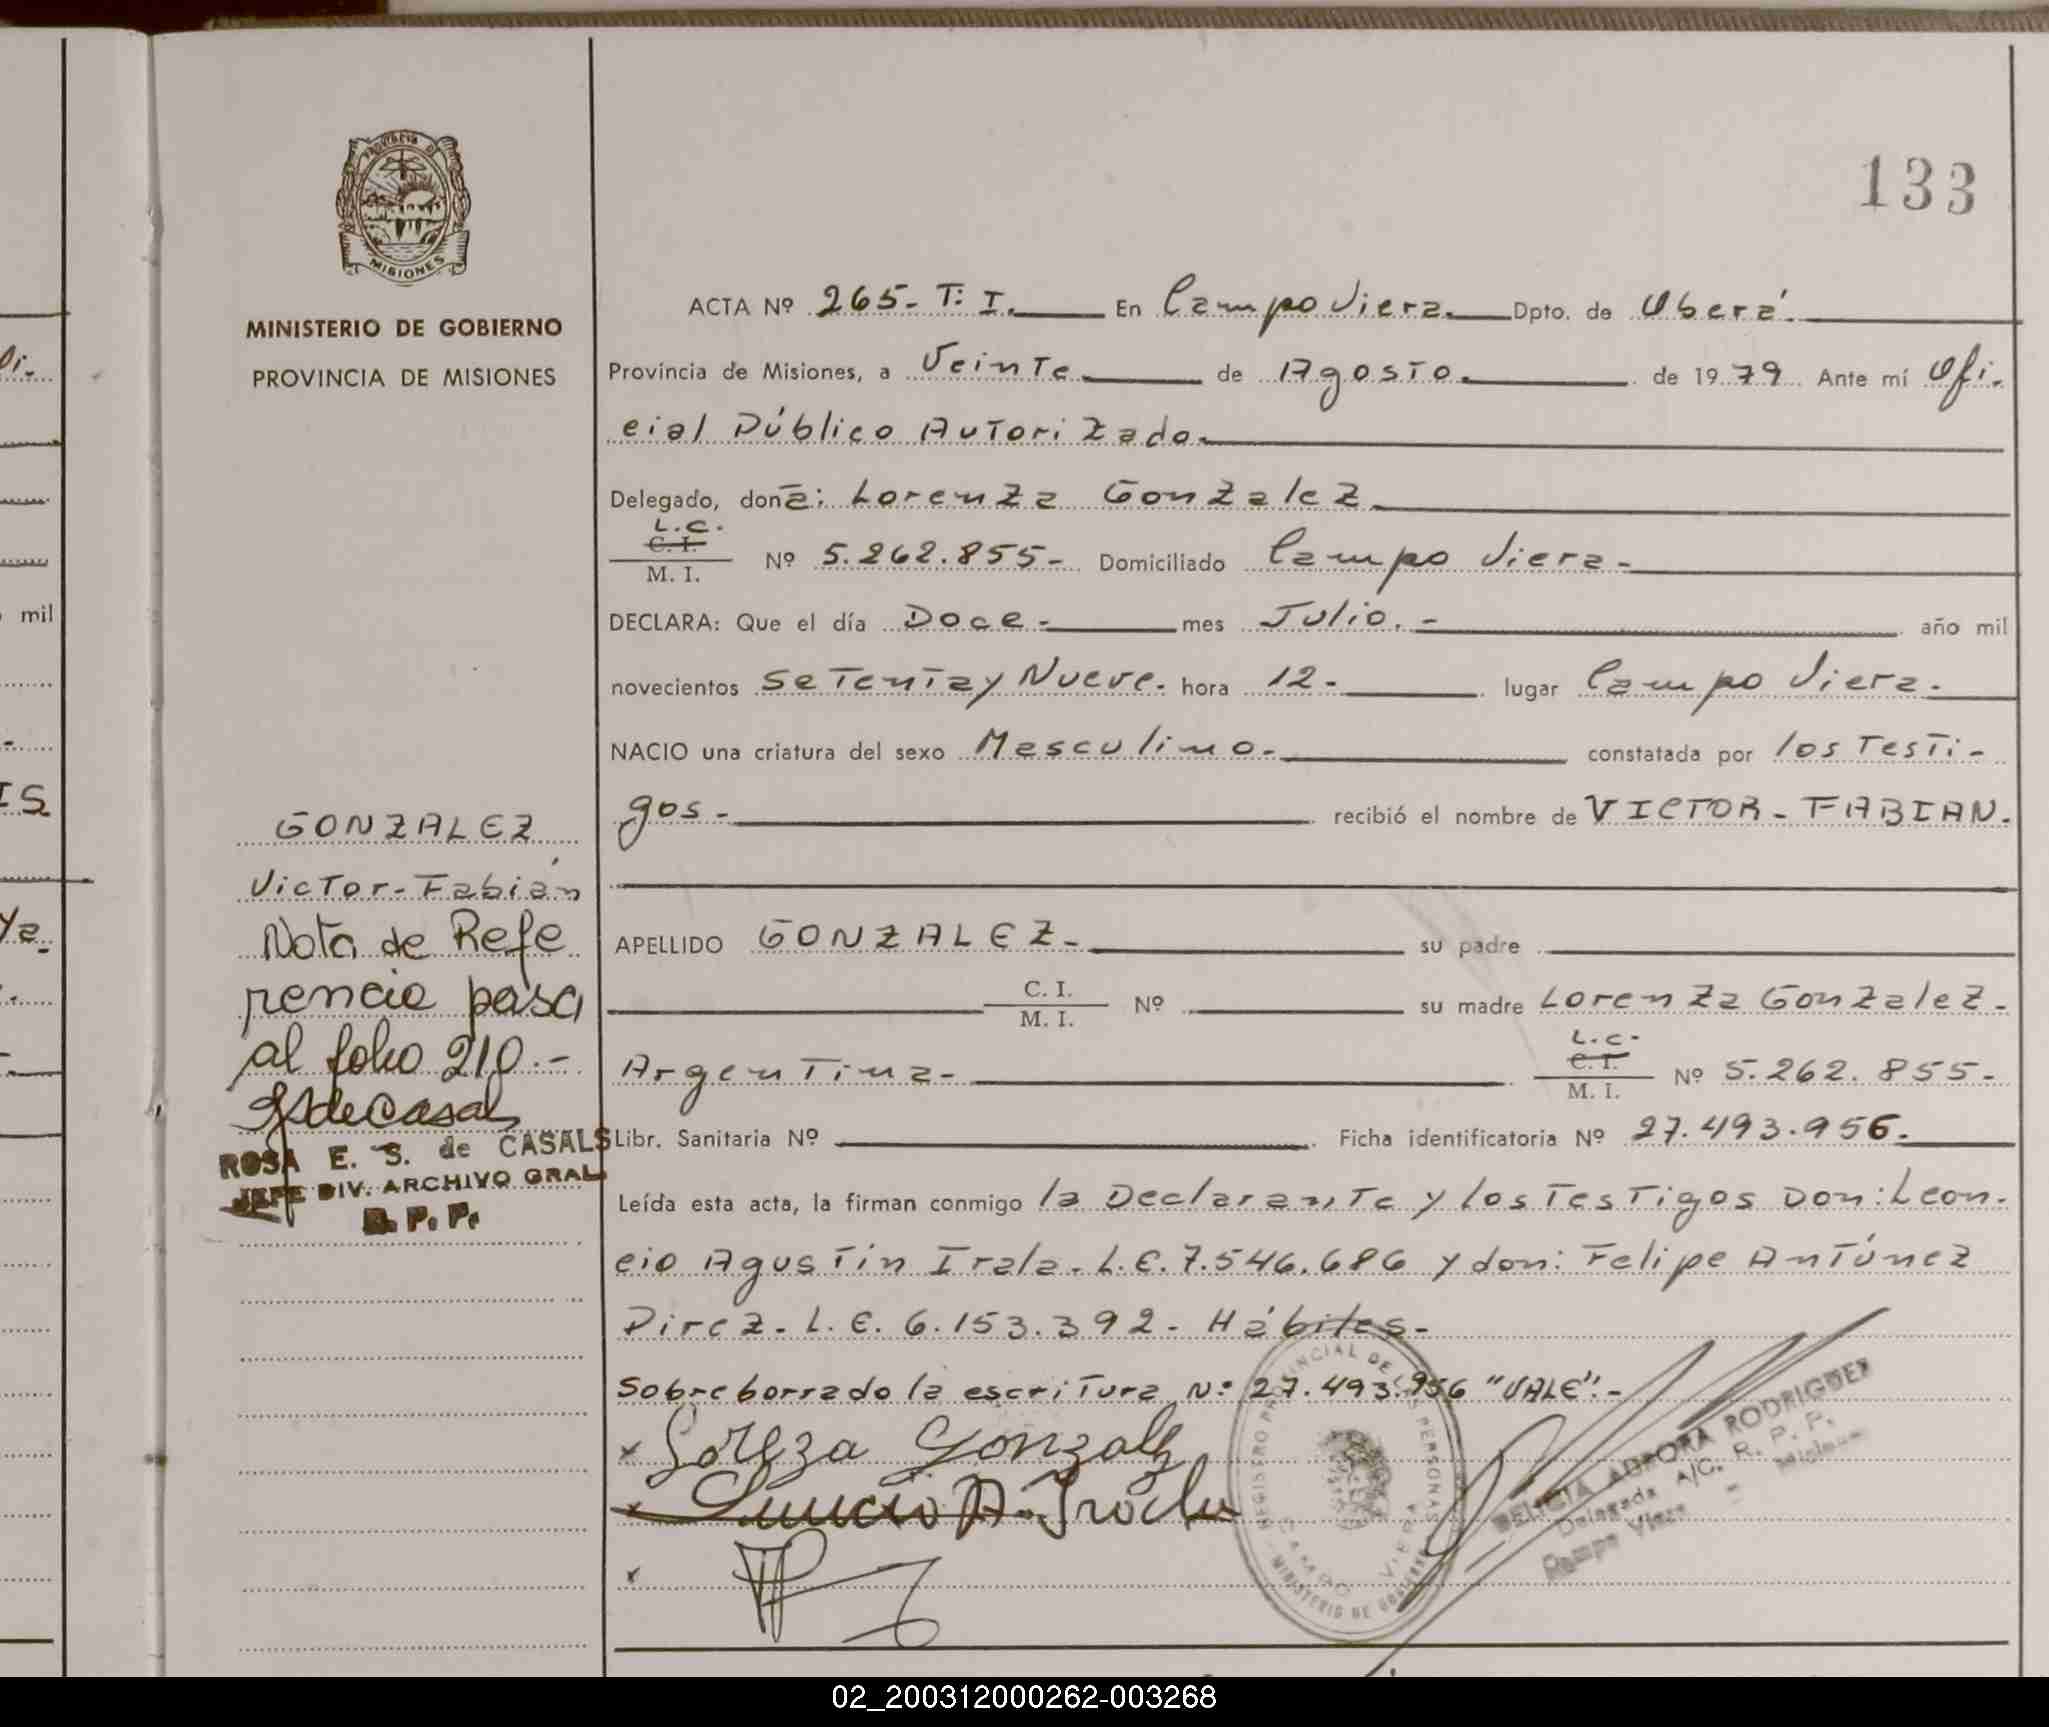 133
PROVINCIA DE
MISIONES
MINISTERIO DE GOBIERNO
PROVINCIA DE MISIONES
ACTA Nº 265- T: I. En Campo Viera. Dpto. de Oberá.
Provincia de Misiones, a Veinte de Agosto. de 1979 Ante mí Ofi-
cial Público Autorizado.
Delegado, dona: Lorenza Gonzalez
L.C.
C. I.
M. I. Nº 5.262.855- Domiciliado Campo Viera-
DECLARA: Que el día Doce- mes Julio.- año mil
novecientos Setenta y Nueve. hora 12.- lugar Campo Viera.
NACIO una criatura del sexo Masculino- constatada por los Testi-
gos- recibió el nombre de VICTOR-FABIAN.
APELLIDO GONZALEZ- su padre
C. I.
M. I. Nº su madre Lorenza Gonzalez-
Argentina- L.C.
C. I.
M. I. Nº 5.262.855-
Libr. Sanitaria Nº Ficha identificatoria Nº 27.493.956.
Leída esta acta, la firman conmigo la Declarante y los Testigos Don: Leon-
cio Agustín Irala. L.E. 7.546.686 y don: Felipe Antúnez
Pirez- L.E. 6.153.392- Hábiles-
Sobreborrado la escritura Nº 27.493.956 "VALE".-
GONZALEZ
Victor-Fabián
Nota de Refe
rencia pasa
al folio 210.-
ROSA E. S. de CASALS
JEFE DIV. ARCHIVO GRAL
R. P. P.
REGISTRO PROVINCIAL DE LAS PERSONAS
CAMPO VIERA
MINISTERIO DE GOBIERNO
AURORA RODRIGUEZ
Delegada A/C. R. P. P.
Campo Viera Misiones
mil
02_200312000262-003268